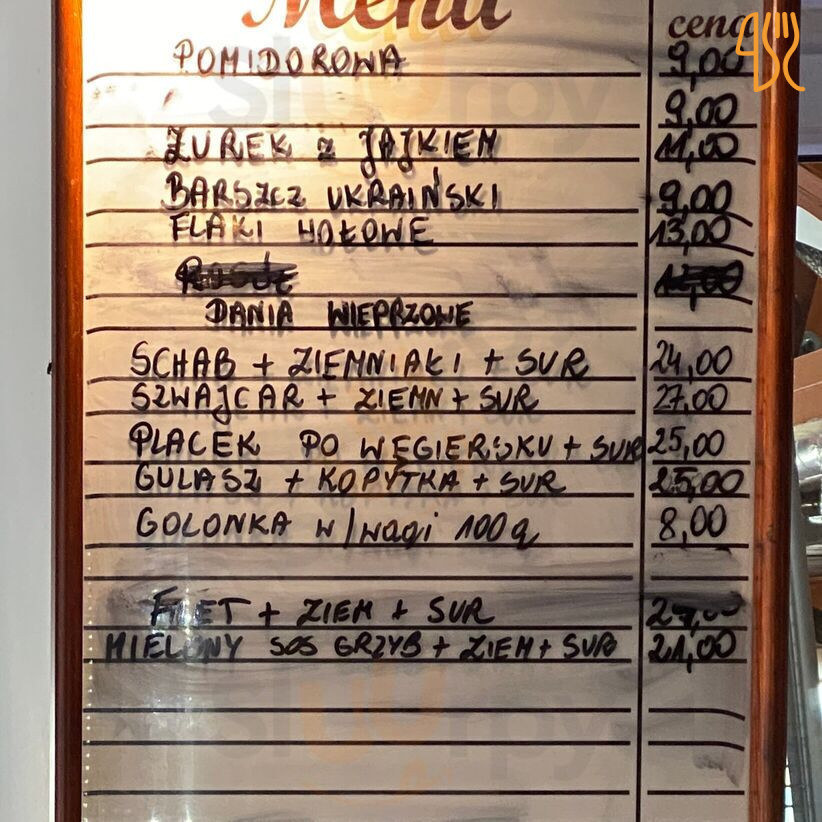 Menu
cena
POMIDOROWA 9,00
9,00
ŻUREK z JAJKIEM 11,00
BARSZCZ UKRAIŃSKI 9,00
FLAKI WOŁOWE 13,00
DANIA WIEPRZOWE
SCHAB + ZIEMNIAKI + SUR 24,00
SZWAJCAR + ZIEMN + SUR 27,00
PLACEK PO WĘGIERSKU + SUR 25,00
GULASZ + KOPYTKA + SUR 25,00
GOLONKA W/wagi 100g 8,00
FILET + ZIEM + SUR
MIELONY SOS GRZYB + ZIEM + SUR 21,00
sluurpy
sluurpy